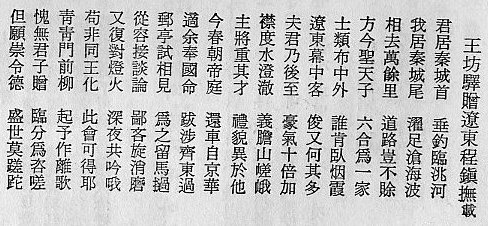 王坊驛贈遼東程鎮撫載
君居秦城首　垂釣臨洮河
我居秦城尾　濯足滄海波
相去萬餘里　道路豈不賒
方今聖天子　六合爲一家
士類布中外　誰肯臥烟霞
遼東幕中客　俊又何其多
夫君乃後至　豪氣十倍加
襟度水澄澈　義膽山嵯峨
主將重其才　禮貌異於他
今春朝帝庭　還車自京華
適余奉國命　跋涉齊東過
郵亭試相見　爲之留馬撾
從容接談論　鄙客旋消磨
又復對燈火　深夜共吟哦
苟非同王化　此會可得耶
青青門前柳　起予作離歌
愧無君子贈　臨分爲咨嗟
但願崇令德　盛世莫蹉跎